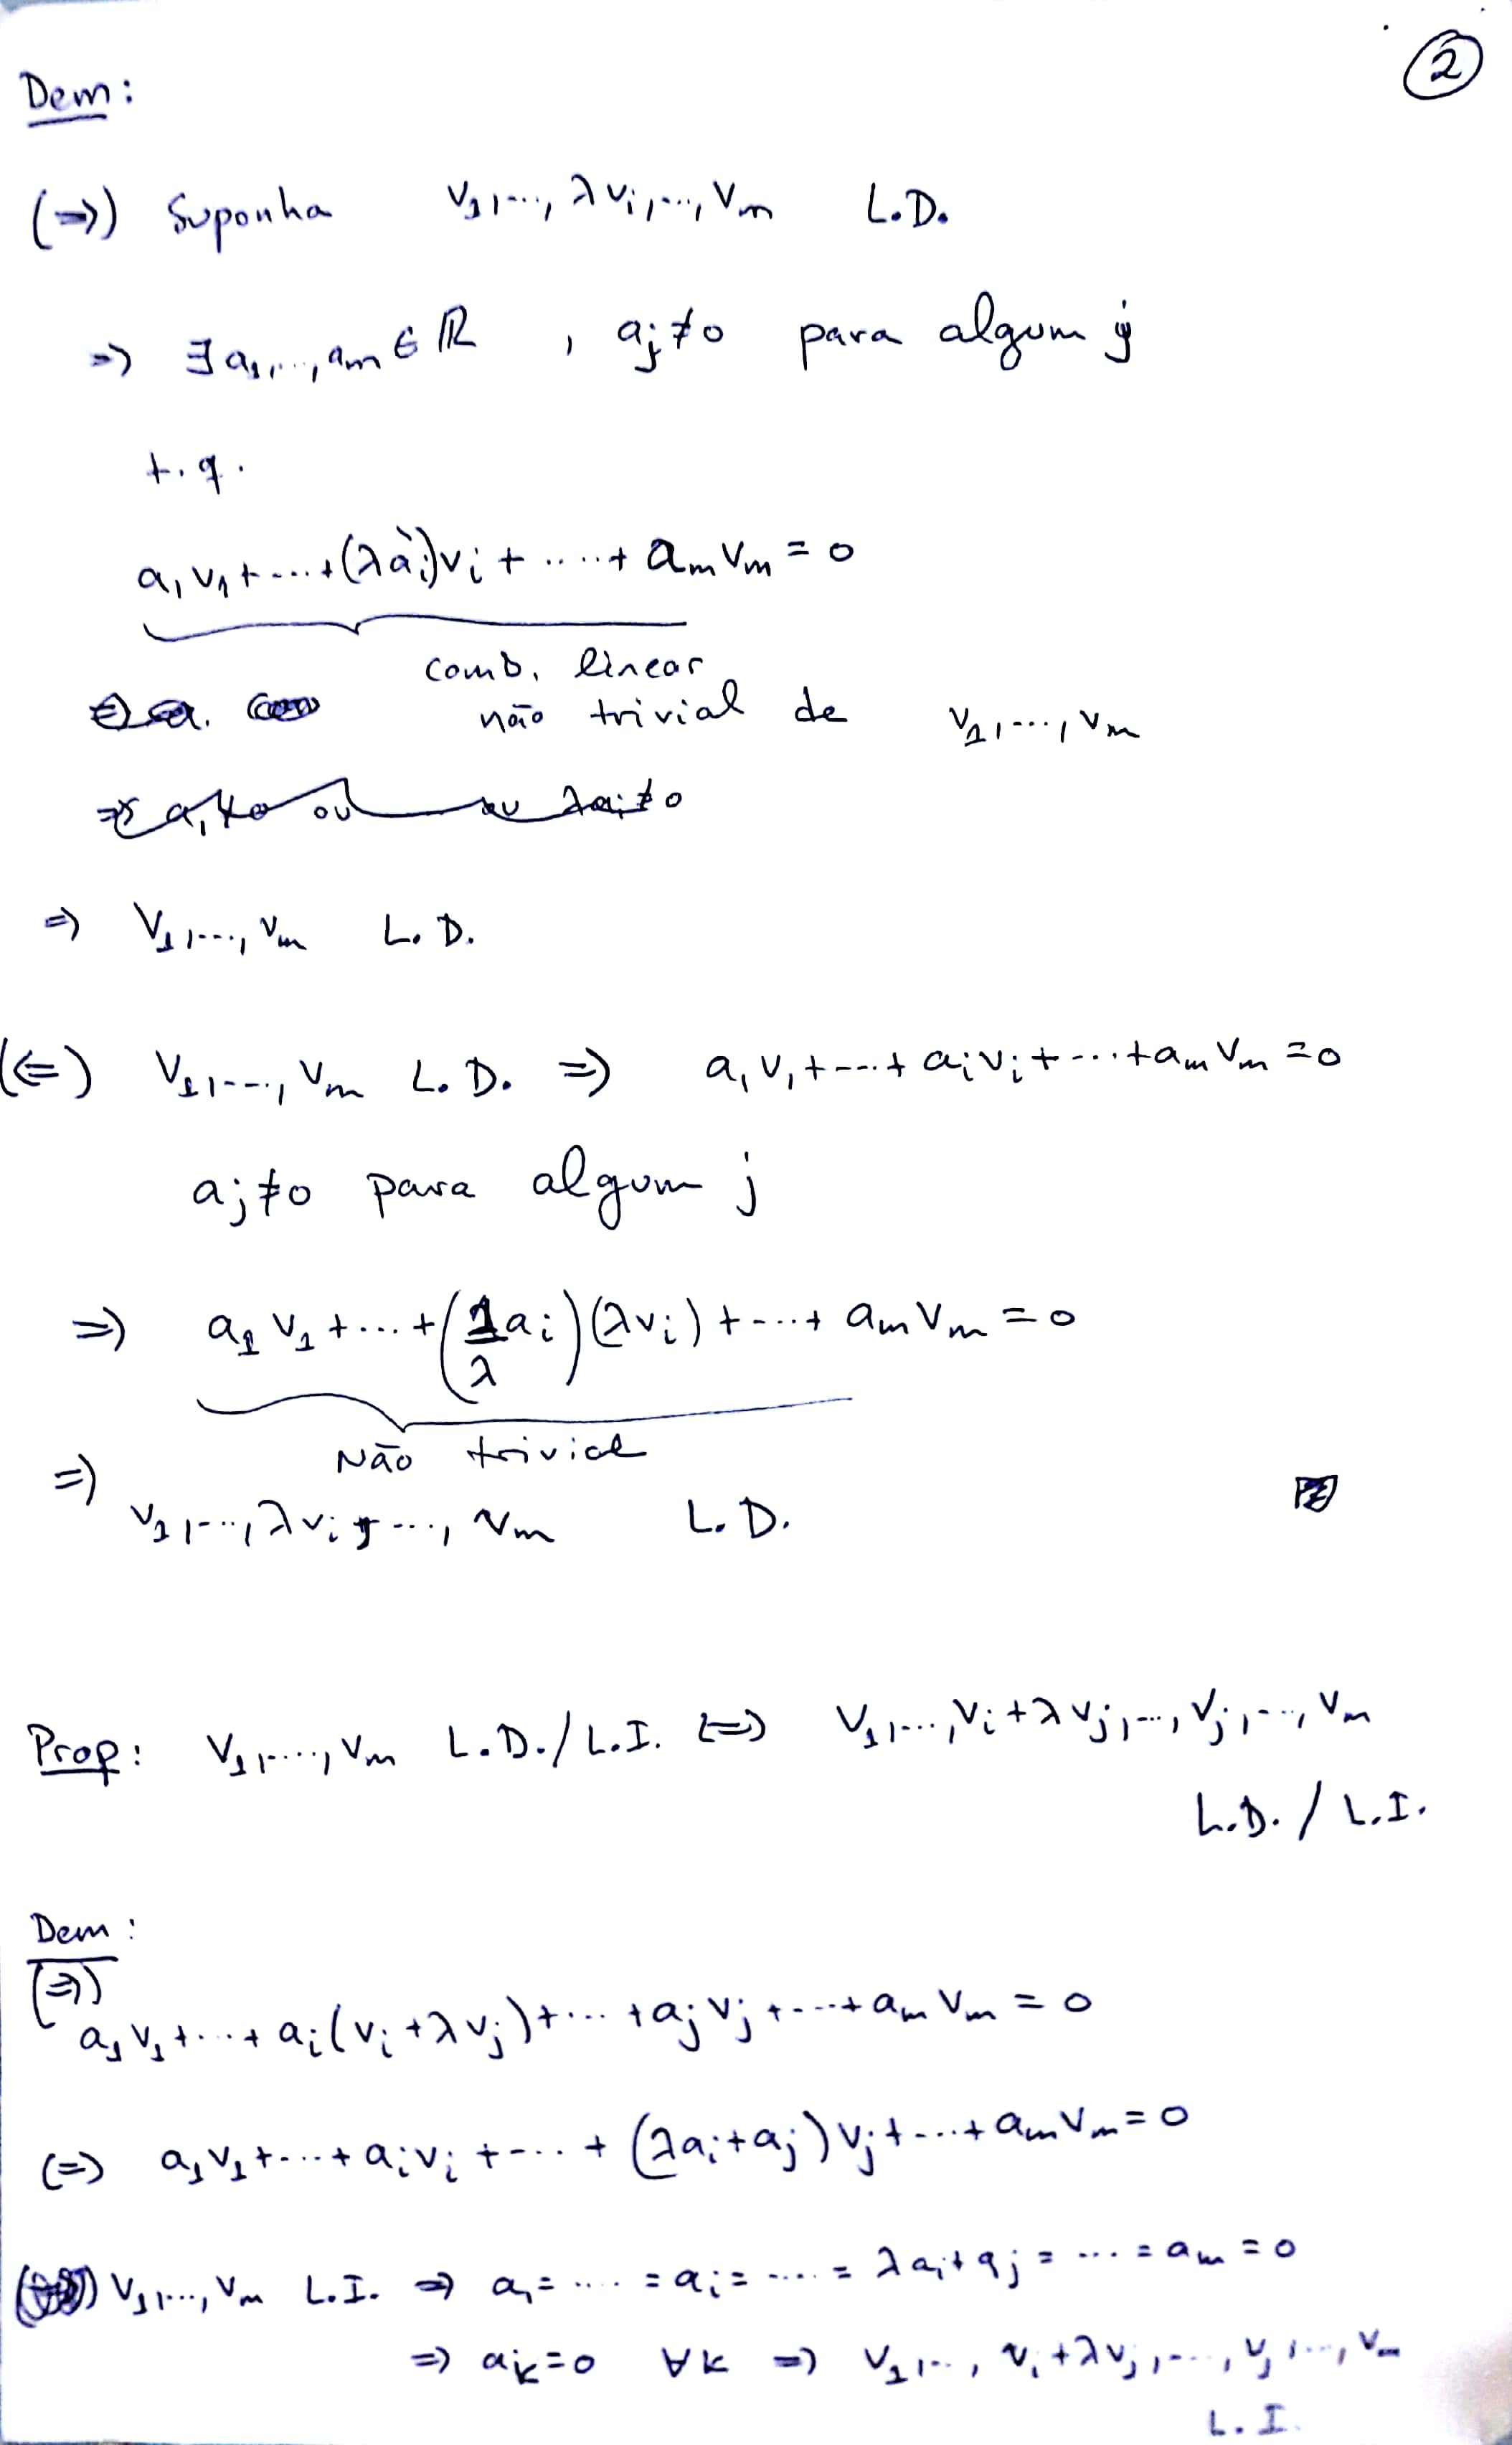 ②
Dem:
(⇒) Suponha v₁,...,λvᵢ,...,vₘ L.D.
⇒ ∃ a₁,...,aₘ ∈ ℝ , aⱼ≠0 para algum j
t.q.
a₁v₁+...+(λaᵢ)vᵢ+.....+aₘvₘ=0
comb. linear
não trivial de v₁,...,vₘ
⇒ a₁≠0 ou ou λaᵢ≠0
⇒ v₁,...,vₘ L.D.
(⇐) v₁,...,vₘ L.D. ⇒ a₁v₁+...+aᵢvᵢ+...+aₘvₘ=0
aⱼ≠0 para algum j
⇒ a₁v₁+...+(1/λ aᵢ)(λvᵢ)+...+aₘvₘ=0
Não trivial
⇒
v₁,...,λvᵢ,...,vₘ L.D.
Prop: v₁,...,vₘ L.D./L.I. ⇔ v₁,...,vᵢ+λvⱼ,...,vⱼ,...,vₘ
L.D./L.I.
Dem:
(⇒)
a₁v₁+...+aᵢ(vᵢ+λvⱼ)+...+aⱼvⱼ+...+aₘvₘ=0
⇔ a₁v₁+...+aᵢvᵢ+...+(λaᵢ+aⱼ)vⱼ+...+aₘvₘ=0
v₁,...,vₘ L.I. ⇒ a₁=....=aᵢ=....=λaᵢ+aⱼ=...=aₘ=0
⇒ aₖ=0 ∀k ⇒ v₁,...,vᵢ+λvⱼ,...,vⱼ,...,vₘ
L.I.